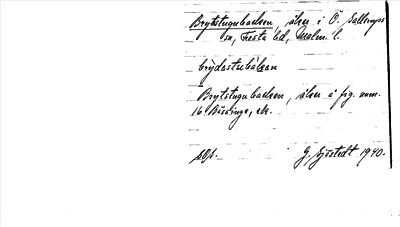 Brytstugubacken, åker i Ö. Sallerups
sn, Frosta hd, Malm. l.
brýdastubákan
Brytstugubacken, åker å fig. num.
16 Bussinge, ek.
G. Sjöstedt 1940.